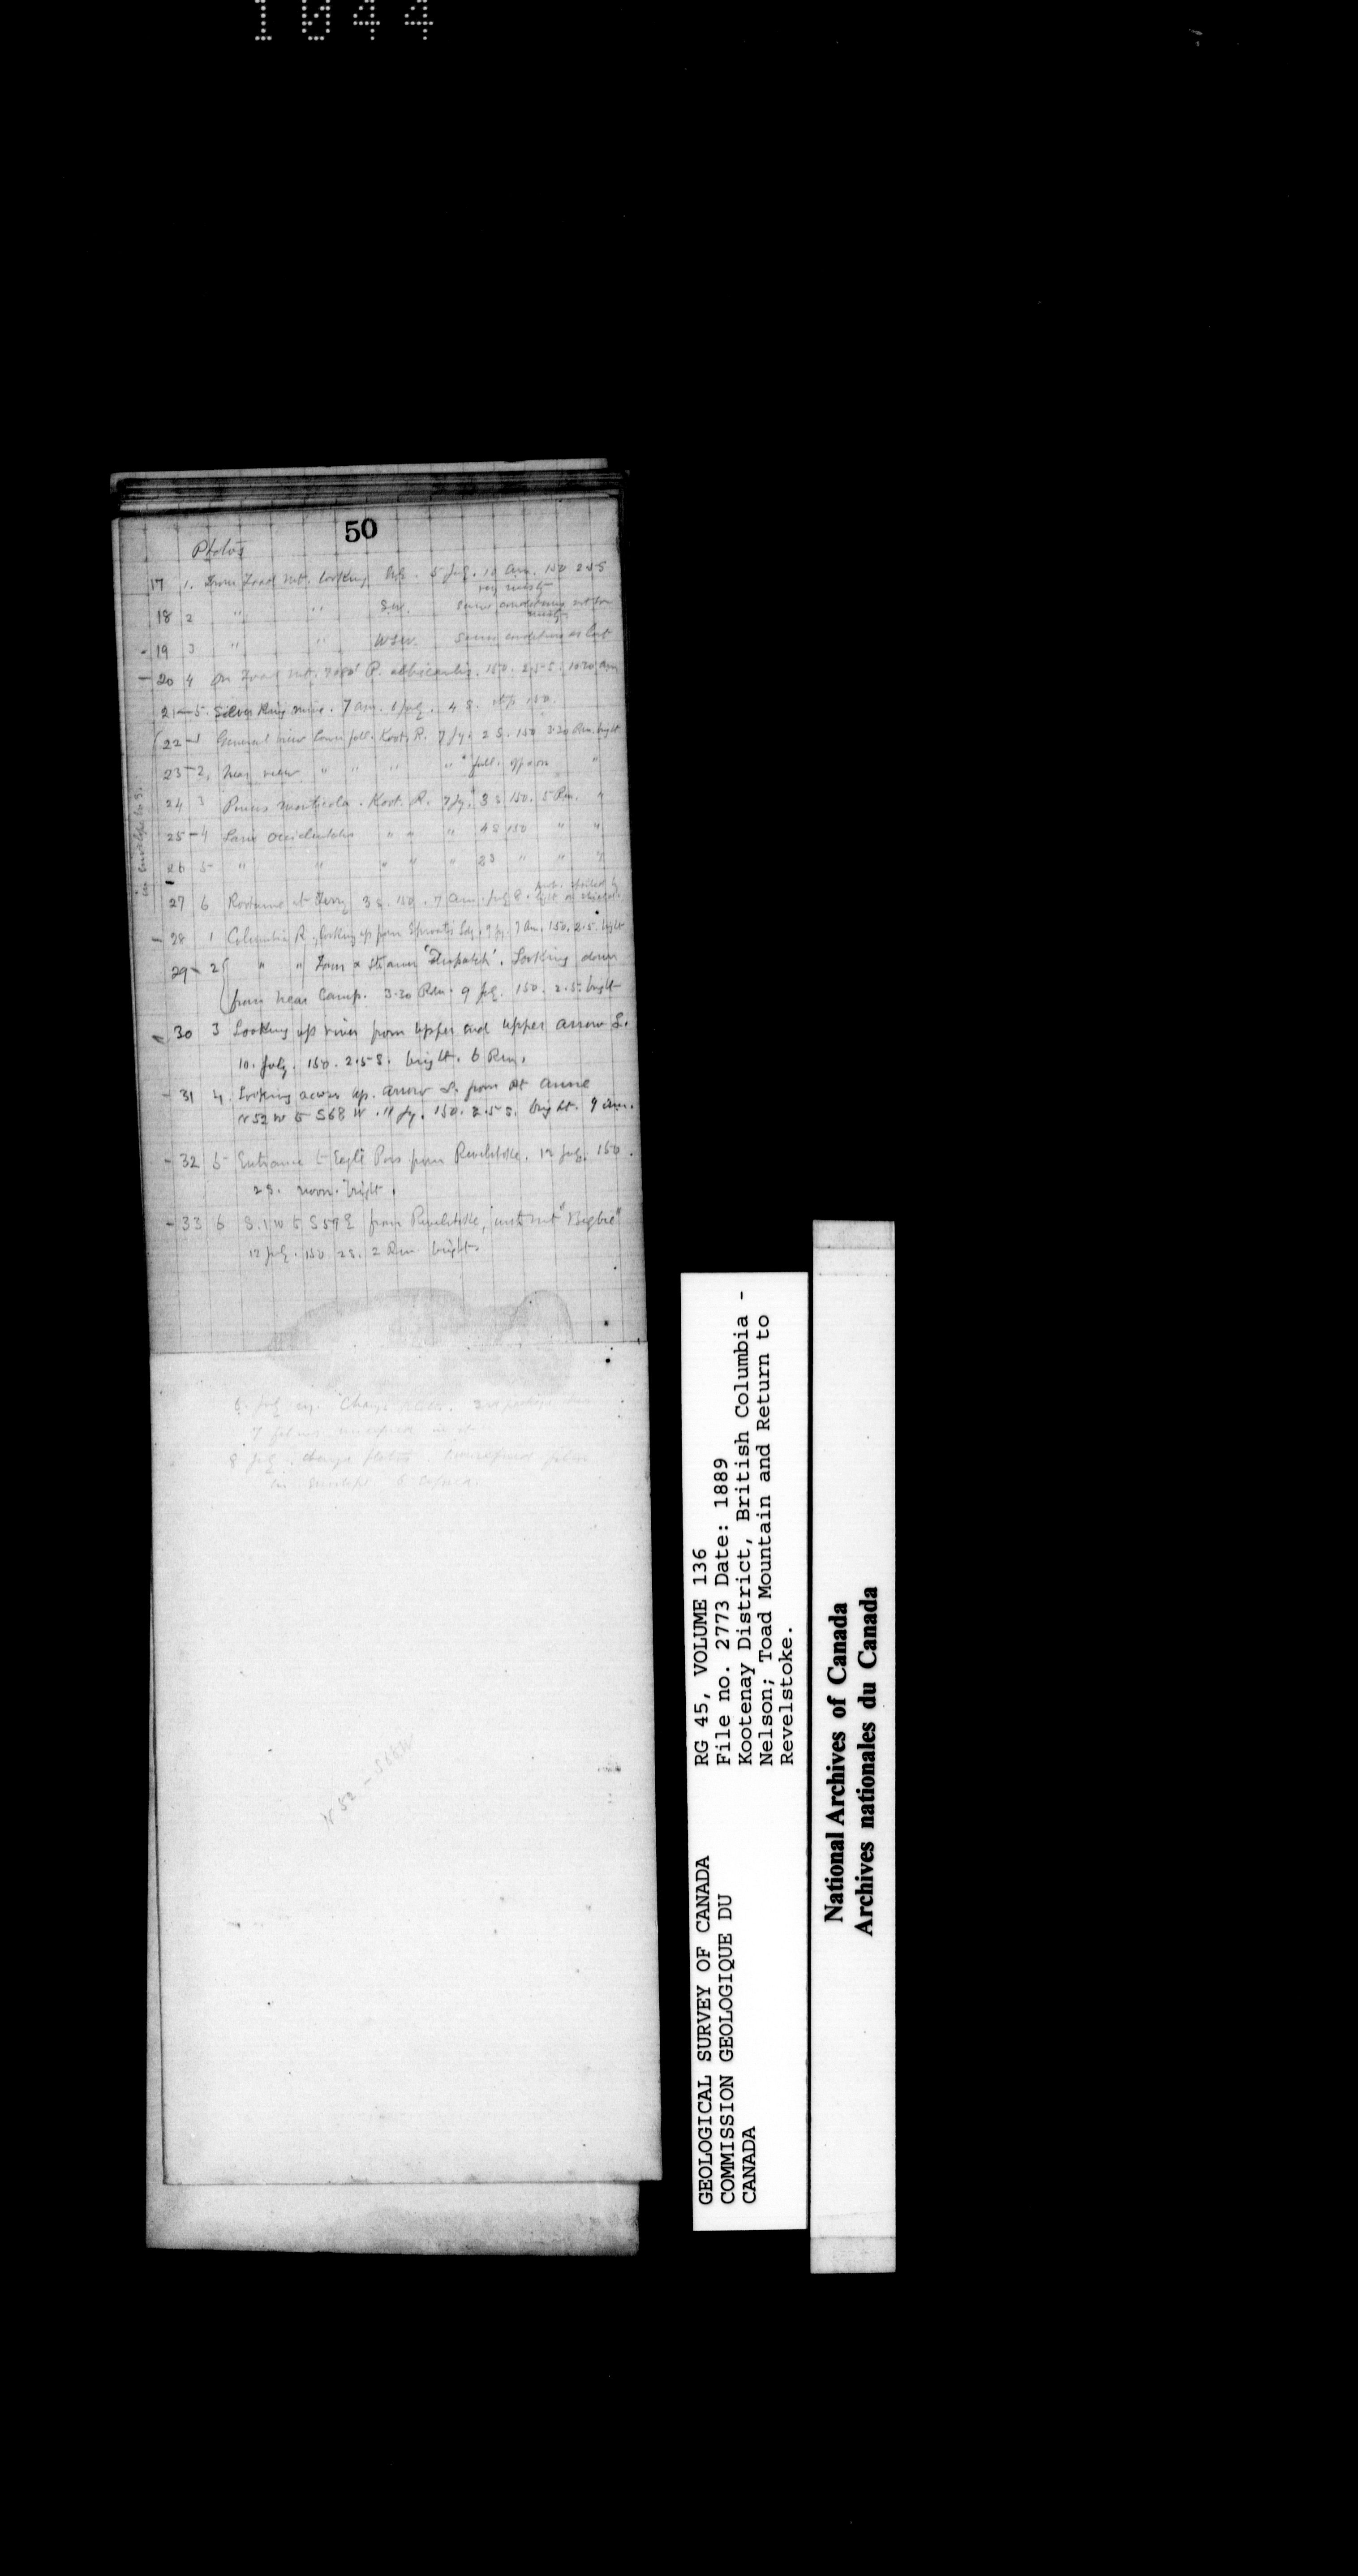 1044
50
Photos
17 1. From Toad Mt. looking NE. 5 July. 10 Am. 150 2.5 S
very misty
18 2 " " SW. same conditions not so
misty
- 19 3 " " WSW. Same conditions as last
- 20 4 On Toad Mt. P. albicaulis. 150. 2.5 S. 10.30 Am
21 - 5. Silver King mine. 7 am. 6 July. 4 S. stop 150.
(22 - 1 General view Lower fall. Koot. R. 7 Jy. 2 S. 150 3.30 Pm. bright
23 - 2, Near view " " " " " "
24 3 Pinus monticola. Koot. R. 7 Jy. 3 S 150. 5 Pm. "
25 - 4 Larix occidentalis " " " 4 S 150 " "
26 5 " " " " " 2 S " " "
in envelope to 3.
27 6 at Ferry 3 S. 150. 7 am. July 8. prob. spoiled by
light on
- 28 1 Columbia R. looking up from Sproats Ldg. 9 Jy. 9 Am. 150. 2.5. bright
29 - 2 { " " Town & Steamer 'Despatch'. Looking down
from near Camp. 3.30 Pm. 9 July. 150. 2.5. bright
30 3 Looking up river from upper end upper Arrow L.
10. July. 150. 2.5 S. bright. 6 Pm.
- 31 4. Looking across up. Arrow L. from
N 52 W to S 68 W. 11 Jy. 150. 2.5 S. bright. 9 am.
- 32 5 Entrance to Eagle Pass from Revelstoke. 12 July. 150.
2 S. noon. bright.
- 33 6 S. 1 W to S 59 E from Revelstoke, with Mt "Begbie"
12 July. 150 2 S. 2 Pm. bright.
6 July Change plates. 3rd package has
7 films unexposed in it
8 July. change plates. unexposed films
in envelope 6 exposed.
N 52 - S 68 W
RG 45, VOLUME 136
File no. 2773 Date: 1889
Kootenay District, British Columbia -
Nelson; Toad Mountain and Return to
Revelstoke.
GEOLOGICAL SURVEY OF CANADA
COMMISSION GEOLOGIQUE DU
CANADA
National Archives of Canada
Archives nationales du Canada